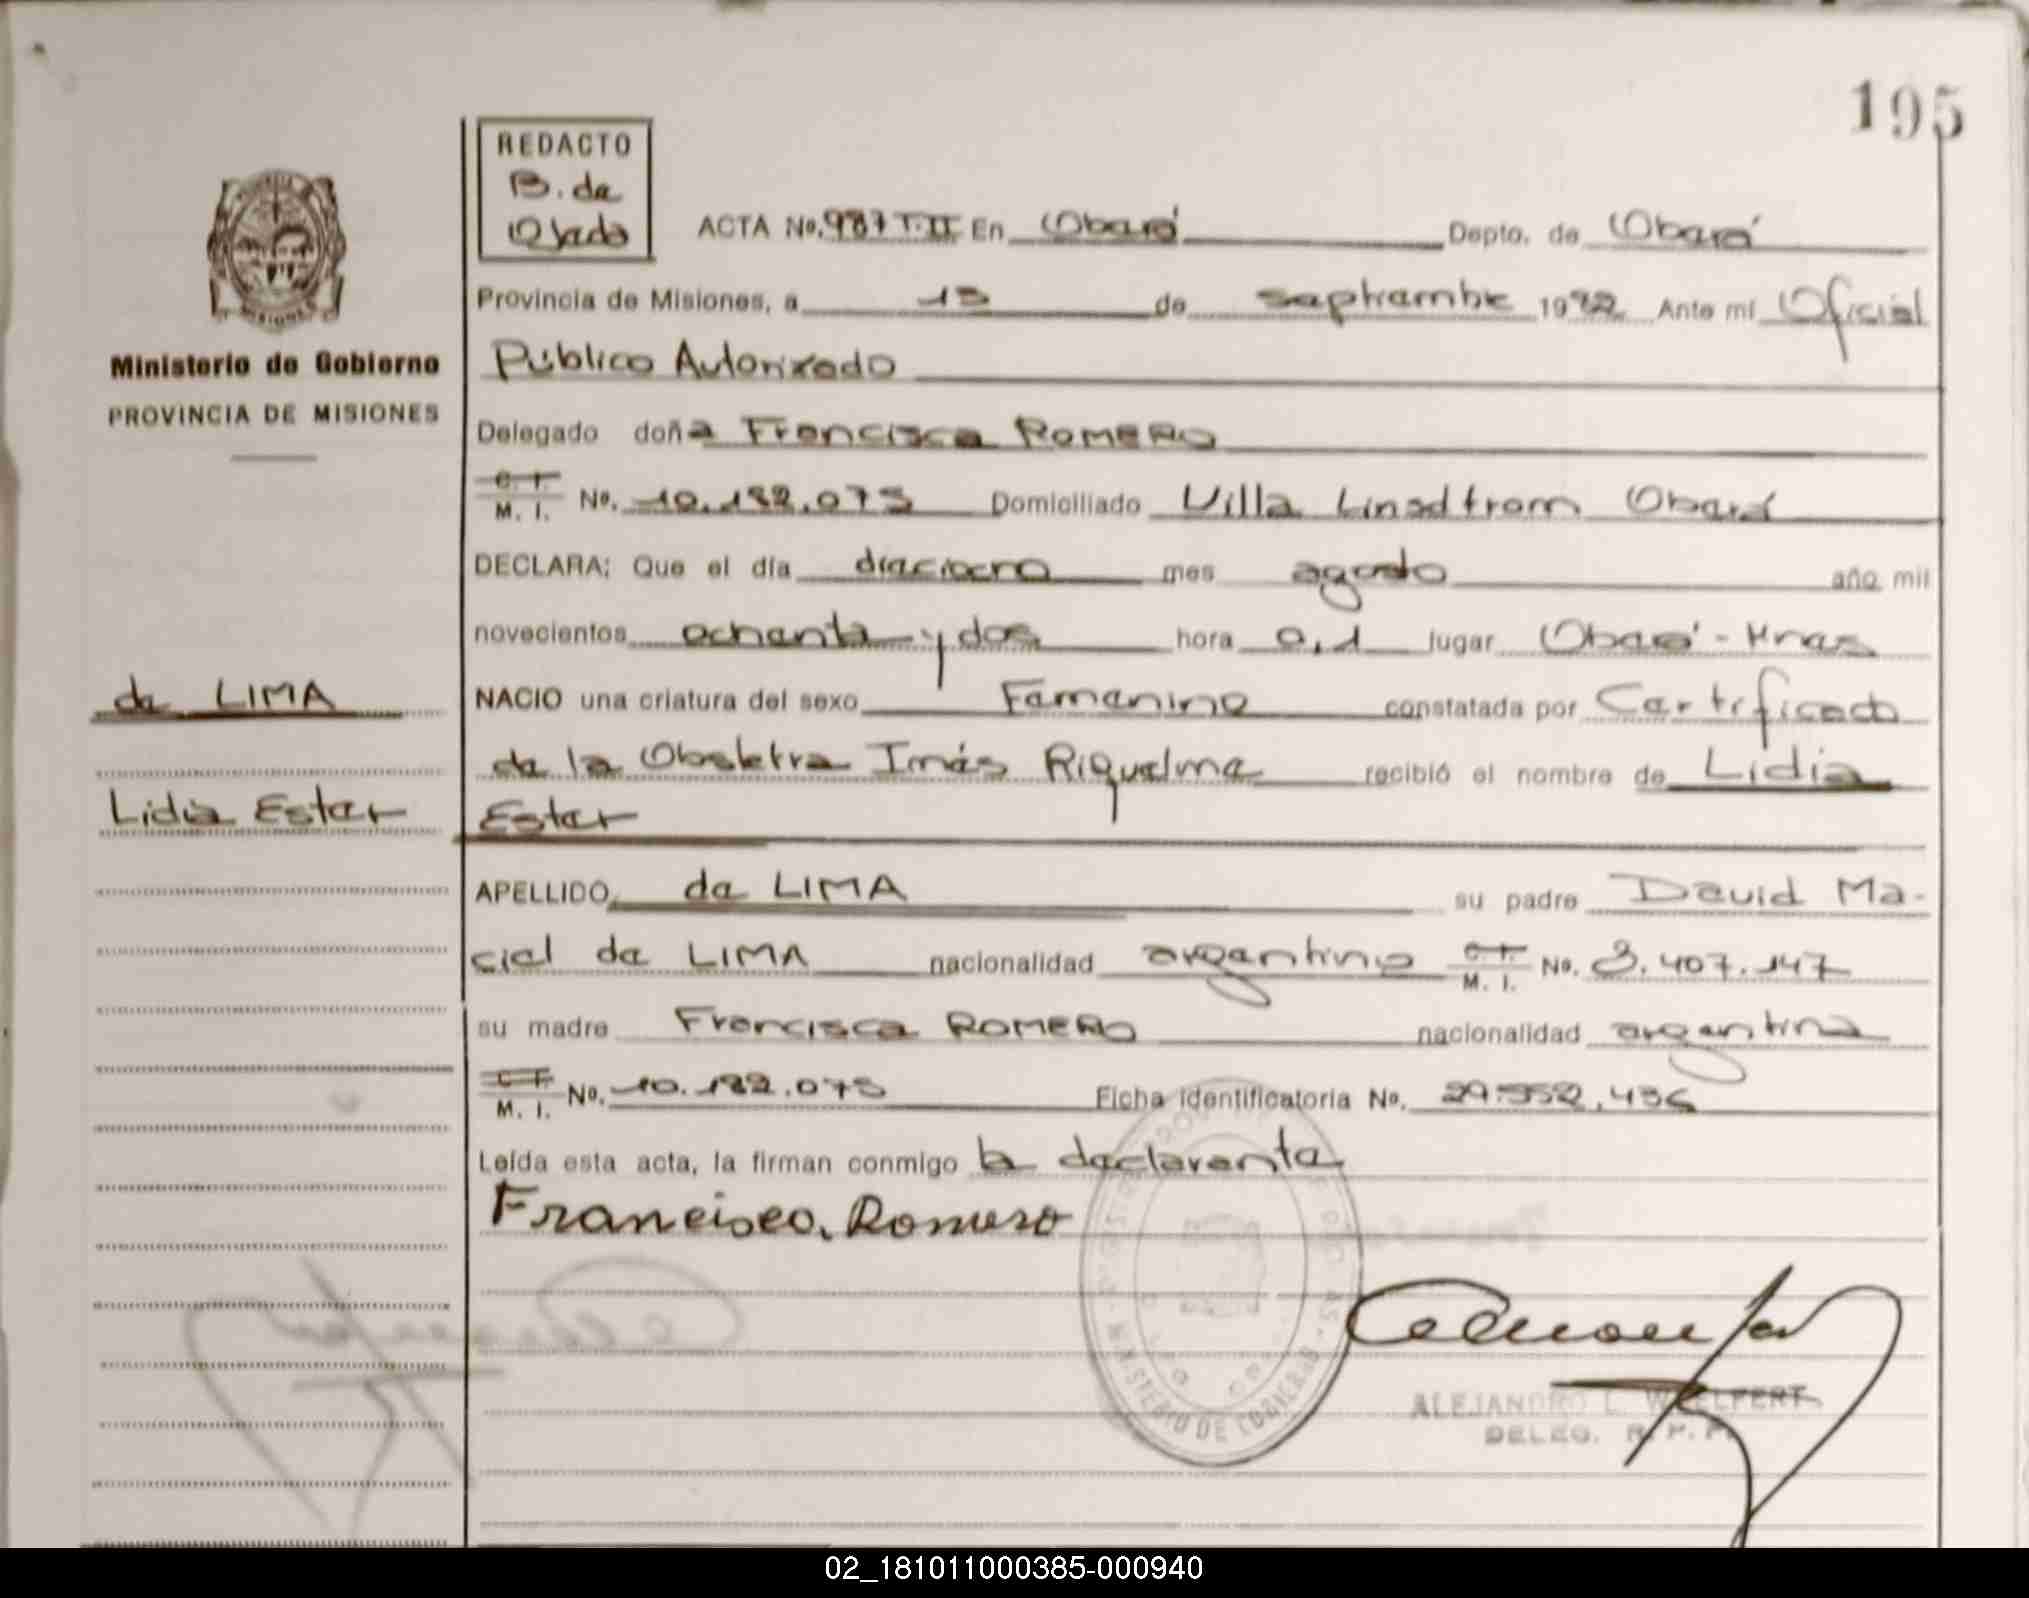 195
REDACTO
B. de
Olado
ACTA No. 987 T-II En Oberá Depto. de Oberá
Provincia de Misiones, a 13 de septiembre 1982 Ante mí Oficial
Público Autorizado
Ministerio de Gobierno
PROVINCIA DE MISIONES
Delegado doña Francisca ROMERO
C. I. M. I. No. 10.182.073 Domiciliado Villa Linsdtrom Oberá
DECLARA: Que el día dieciocho mes agosto año mil
novecientos ochenta y dos hora 0,1 lugar Oberá - Mnes
de LIMA
NACIO una criatura del sexo Femenino constatada por Certificado
de la Obstetra Inés Riquelme recibió el nombre de Lidia
Lidia Ester
Ester
APELLIDO de LIMA su padre David Ma-
ciel de LIMA nacionalidad argentino C. I. M. I. No. 3.407.147
su madre Francisca ROMERO nacionalidad argentina
C. I. M. I. No. 10.182.073 Ficha identificatoria No. 29.552.436
Leída esta acta, la firman conmigo la declarante
Francisca Romero
MINISTERIO DE GOBIERNO
ALEJANDRO L. WOELFERT
DELEG. R. P. P.
02_181011000385-000940